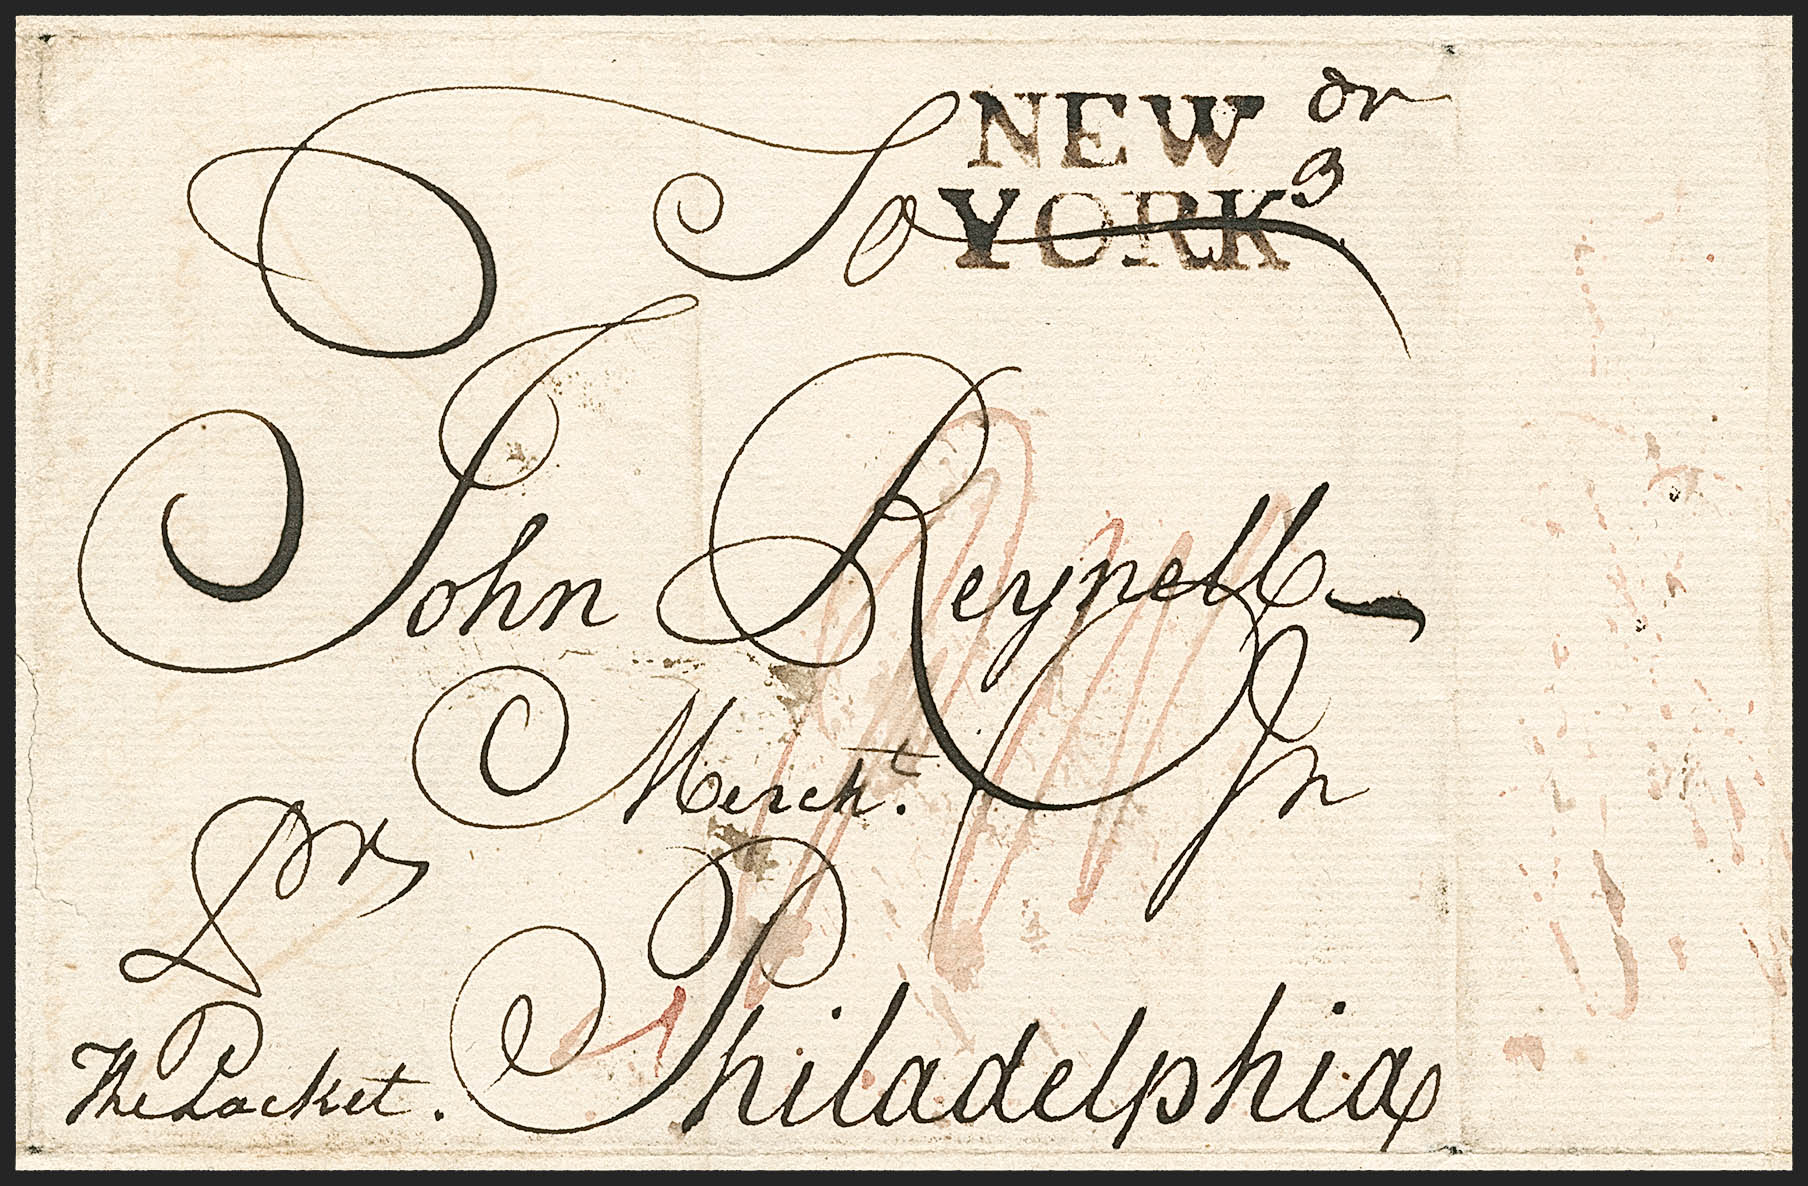 To
NEW
YORK
dr
3
John Reynell
Mercht.
In
Pr
The Packet.
Philadelphia